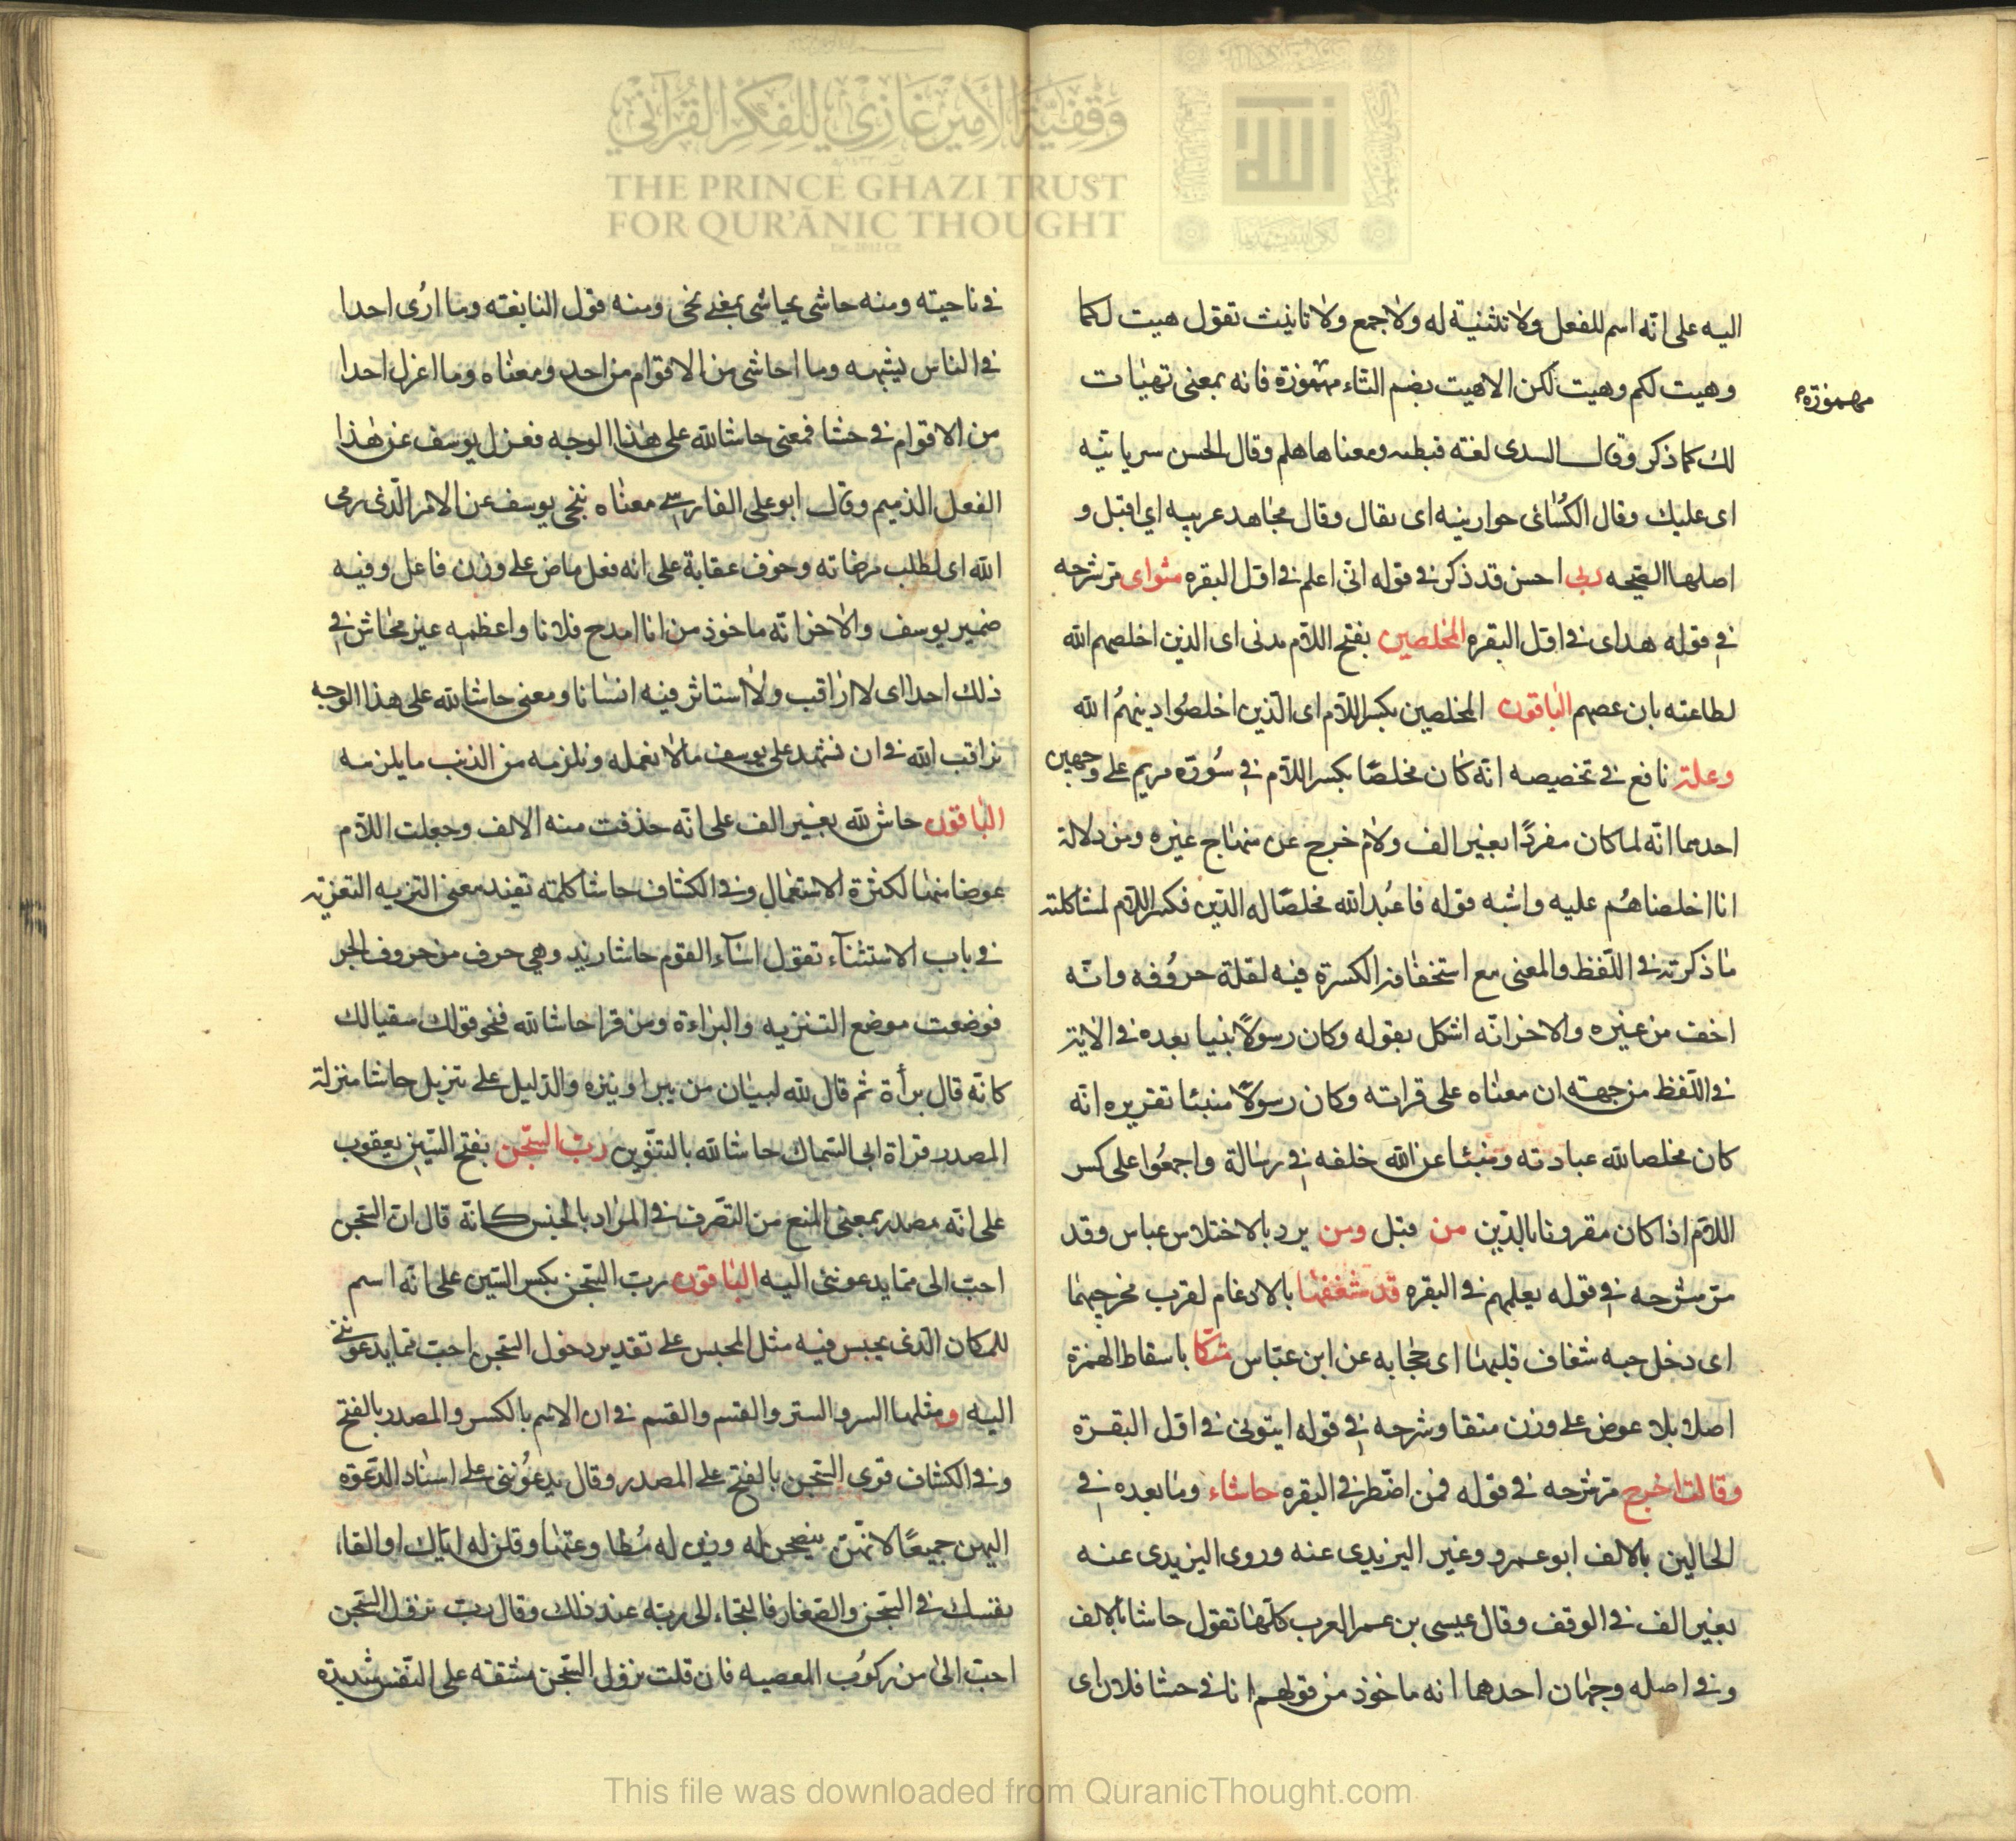 وقفية الأمير غازي للفكر القرآني
THE PRINCE GHAZI TRUST
FOR QUR'ĀNIC THOUGHT
اليه على انّه اسم للفعل ولا تثنية له ولا جمع ولا تانيث تقول هيت لكما
وهيت لكم وهيت لكن الا هيت بضم التاء مهموزة فانه بمعنى تهيات
مهموزة
لك كما ذكر وقال السدى لغة قبطيه ومعناها هلم وقال الحسن سريانيه
اى عليك وقال الكسائى حورانيه اى تقال وقال مجاهد عربيه اي اقبل و
اصلها الصحيحه ربى احسن قد ذكر في قوله انى اعلم في اوّل البقره مثواى مر شرحه
في قوله هداى في اوّل البقره المخلصين بفتح اللام مدنى اى الذين اخلصهم الله
لطاعته بان عصمهم الباقون المخلصين بكسر اللام اى الذين اخلصوا دينهم لله
وعلة نافع في تخصيصه انّه كان مخلصًا بكسر اللام في سورة مريم على وجهين
احدهما انّه لما كان مفردًا بغير الف ولام خرج عن منهاج غيره ومن دلالة
انا اخلصناهم عليه واشبه قوله فاعبد الله مخلصًا له الدّين فكسر اللام لمشاكلته
ما ذكرته في اللّفظ والمعنى مع استخفافه الكسرة فيه لقلة حروفه وانّه
اخف من غيره والاخر انّه اشكل بقوله وكان رسولًا نبيا بعده في الاية
في اللّفظ من جهة ان معناه على قراته وكان رسولًا منبئا تقريره انّه
كان مخلصا لله عبادته ومنبئا عن الله خلقه في رسالة واجمعوا على كسر
اللام اذا كان مقرونا بالدّين من قبل ومن يرد بالاختلاس عباس وقد
مرّ شرحه في قوله يعلمهم في البقره قد شغفها بالادغام لقرب مخرجهما
اى دخل حبه شغاف قلبها اى حجابه عن ابن عبّاس متكا باسقاط الهمزة
اصلا بلا عوض على وزن متقا وشرحه في قوله ايتونى في اوّل البقرة
وقالت اخرج مر شرحه في قوله فمن اضطر في البقره حاشاء وما بعده في
الحالين بالالف ابو عمرو وغير اليزيدى عنه وروى اليزيدى عنه
بغير الف في الوقف وقال عيسى بن عمر العرب كلّها تقول حاشا بالالف
وفي اصله وجهان احدهما انه ماخوذ من قولهم انا في حشا فلان اى
في ناحيته ومنه حاشى يحاشى بمعنى نحى ومنه قول النابغه وما ارى احدا
في الناس يشبهه وما احاشى من الاقوام من احد ومعناه وما اعزل احدا
من الاقوام في حشا فمعنى حاشا لله على هذا الوجه فعزل يوسف عن هذا
الفعل الذميم وقال ابو على الفارسى معناه نحى يوسف عن الامر الّذى رمى
الله اى لطلب مرضاته وخوف عقابة على انه فعل ماض على وزن فاعل وفيه
ضمير يوسف والاخر انّه ماخوذ من انا امدح فلانا واعظمه غير محاش في
ذلك احدا اى لا اراقب ولا استاثر فيه انسانا ومعنى حاشا لله على هذا الوجه
نراقب الله في ان نشهد على يوسف ما لا نعمله ونلزمه من الذنب ما يلزمه
الباقون حاش لله بغير الف على انّه حذفت منه الالف وجعلت اللام
عوضا منها لكثرة الاستعمال وفي الكشاف حاشا كلمة تفيد معنى التنزيه
في باب الاستثناء تقول اساء القوم حاشا زيد وهي حرف من حروف الجر
فوضعت موضع التنزيه والبراءة ومن قرا حاشا لله فنحو قولك سقيا لك
كانّه قال براة ثم قال لله لبيان من يبرا وينزه والدّليل على تنزيل حاشا منزلة
المصدر قراة ابى السّماك حاشا لله بالتنوين ربّ السّجن بفتح السّين يعقوب
على انّه مصدر بمعنى المنع من التّصرف في المراد بالحبس كانّه قال ان السّجن
احبّ الى مما يدعوننى اليه الباقون ربّ السّجن بكسر السّين على انّه اسم
للمكان الّذى يحبس فيه مثل المحبس على تقدير دخول السّجن احبّ مما يدعوننى
اليه ومثلها السر والستر والقسم والقسم في ان الاسم بالكسر والمصدر بالفتح
وفي الكشاف قرى السّجن بالفتح على المصدر وقال يدعوننى على اسناد الدّعوة
اليهن جميعًا لانّهنّ ينصحن له وزين له مطاوعتها وقلن له اياك والقاء
نفسك في السّجن والصّغار فالتجاء الى ربّه عند ذلك وقال ربّ نزول السّجن
احبّ الىّ من ركوب المعصيه فان قلت نزول السّجن مشقه على النّفس شديدة
This file was downloaded from QuranicThought.com